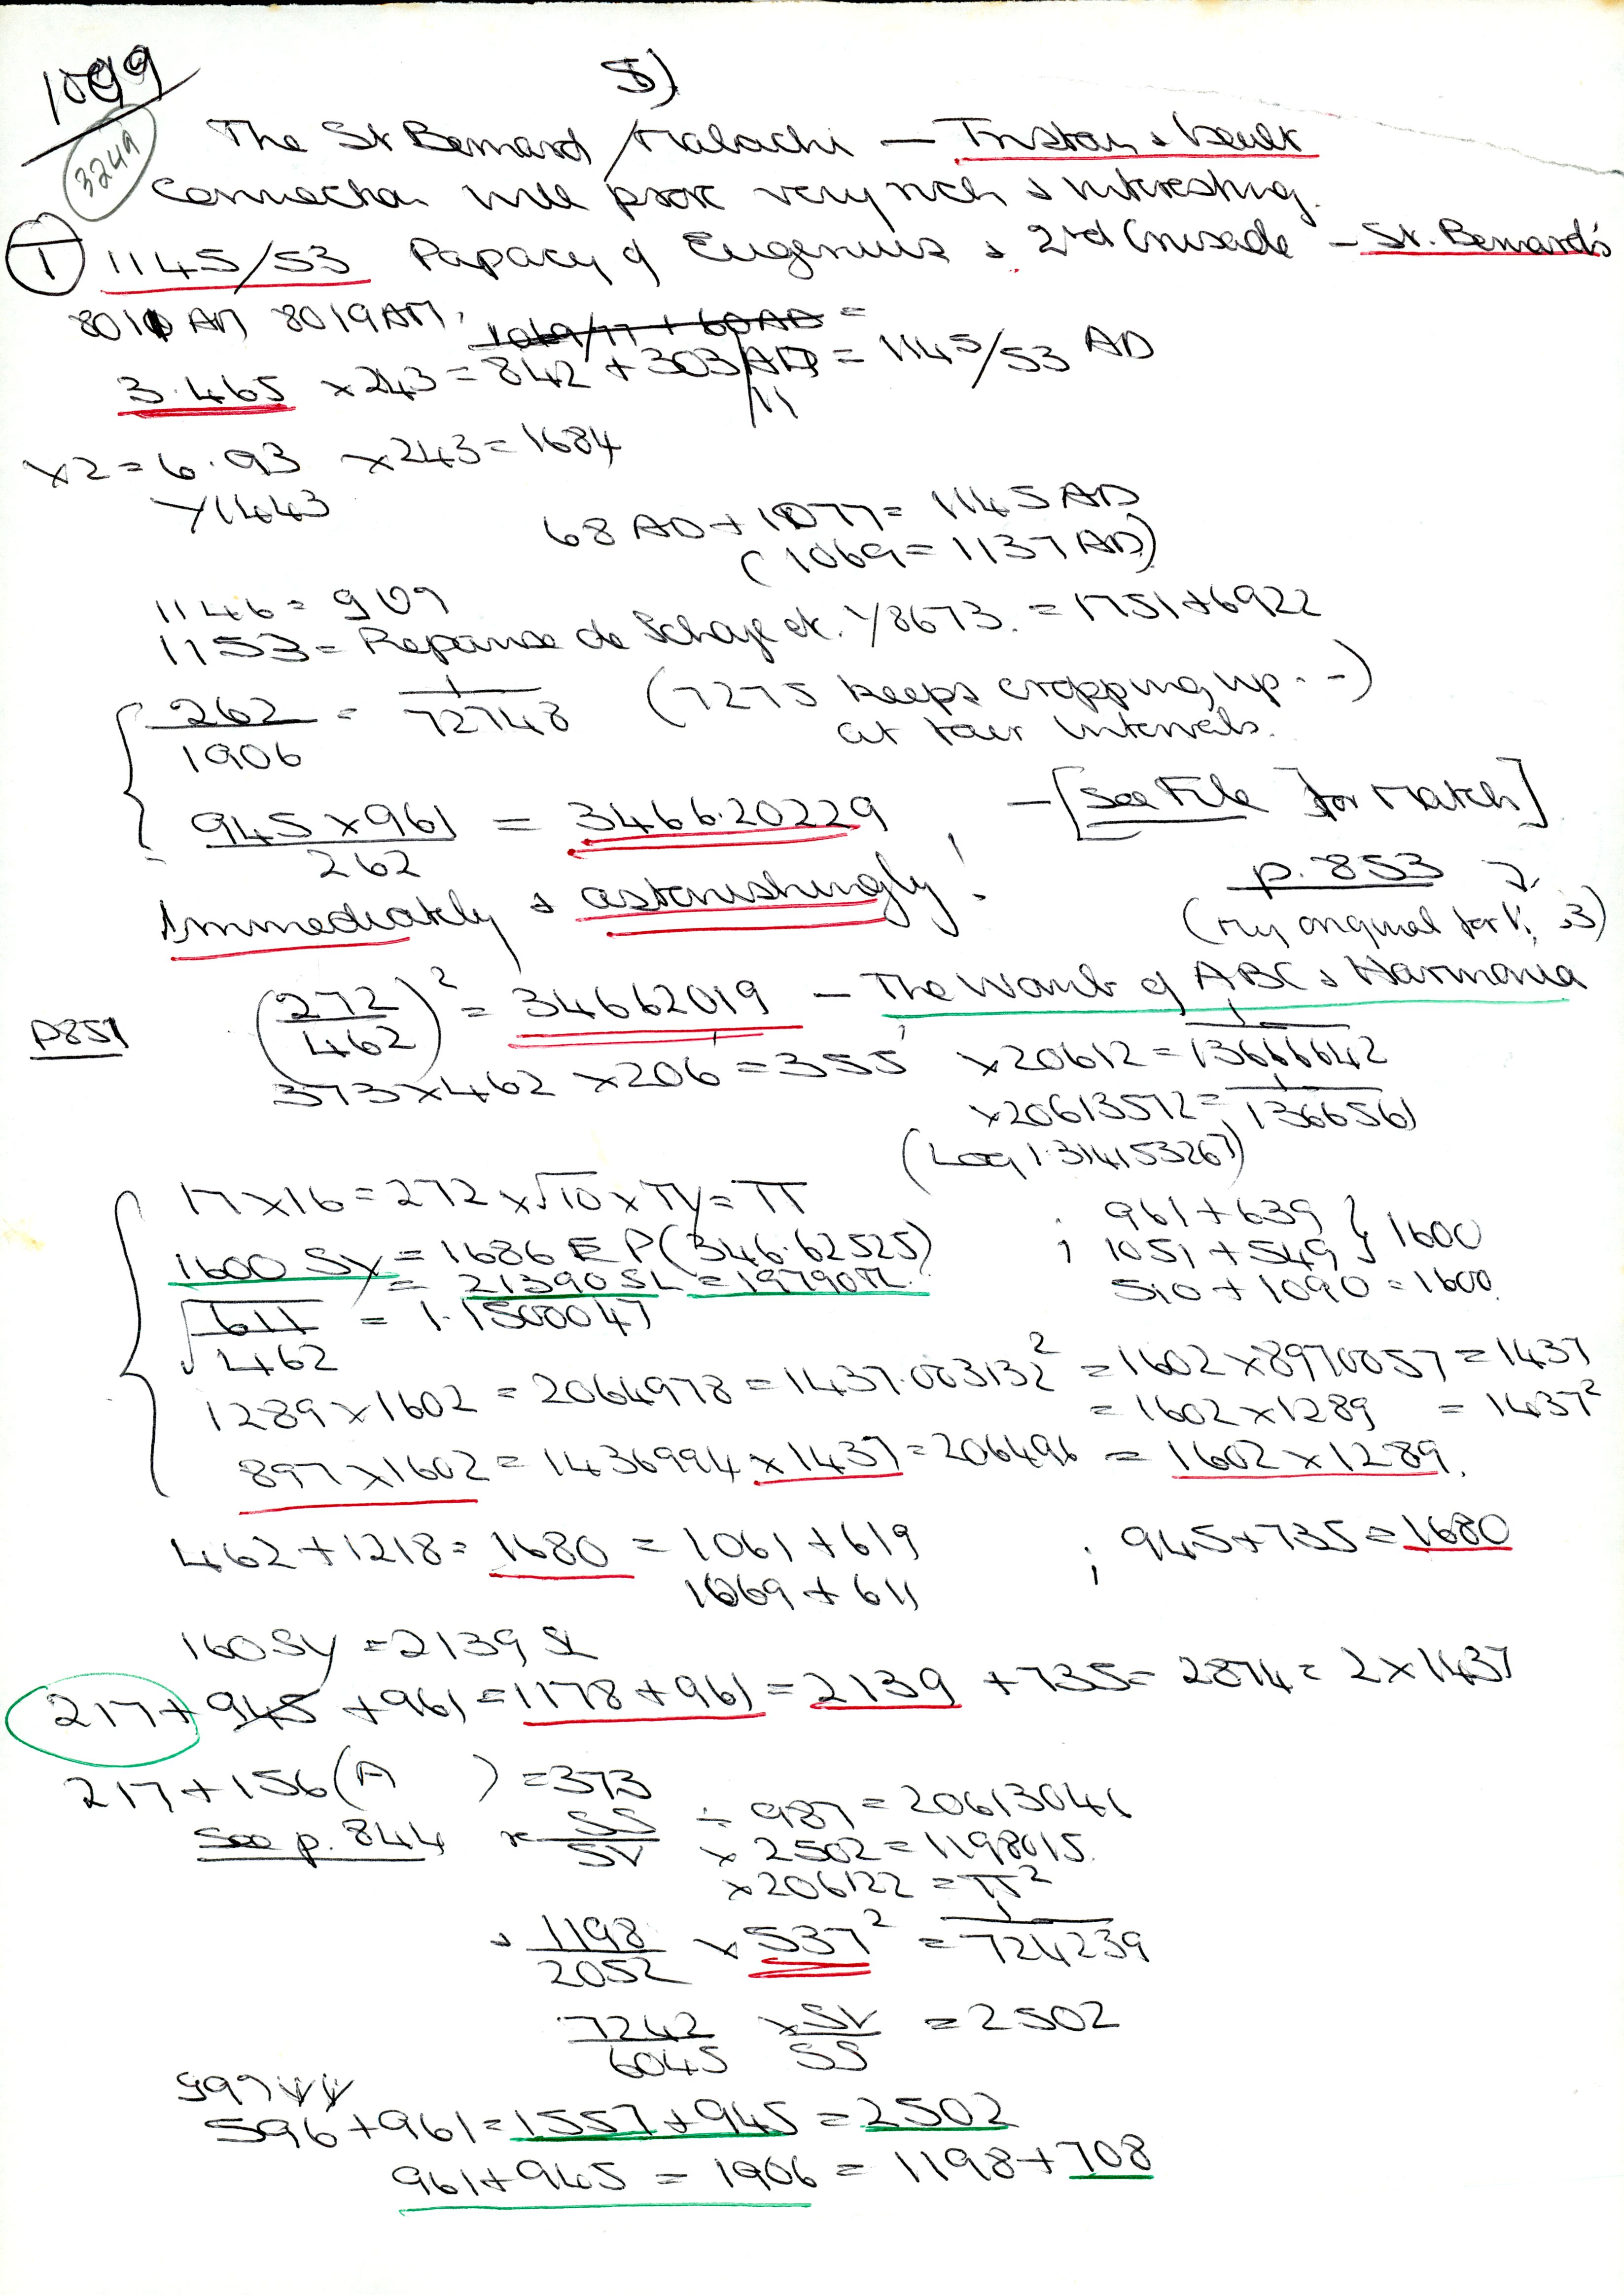 1099
5)
3249
The St Bernard / Malachi — Tristan & Iseult
Connection will prove very rich & interesting.
T 1145/53 Papacy of Eugenius & 2nd Crusade — St. Bernard's
8011 AM 8019 AM. 1069/77 + 60 AD =
3.465 x 243 = 842 + 303/11 AD = 1145/53 AD
x2 = 6.93 x 243 = 1684
Y1443
68 AD + 1077 = 1145 AD
(1069 = 1137 AD)
1146 = 909
1153 = Repanse de Schoye etc. Y8673. = 1751 + 6922
262/1906 = 1/72748 (7275 keeps cropping up . . –)
at four intervals.
945 x 961/262 = 3466.20229 — [See File for Match]
Immediately & astonishingly! p. 853
(my original for
P851 (272/462)² = 34662019 — The Womb of ABC & Harmonia
373 x 462 x 206 = 355 x 20612 = 1/13666642
x 20613572 = 1/1366561
(Log 1.314153267)
17 x 16 = 272 x √10 x TY = π
; 961 + 639 } 1600
1600 SY = 1686 EP (346.62525) ; 1051 + 549
= 21390 SL = 19790 TL. 510 + 1090 = 1600.
√611/462 = 1.1500047
1289 x 1602 = 2064978 = 1437.003132² = 1602 x 8970057 = 1437
= 1602 x 1289 = 1437²
897 x 1602 = 1436994 x 1437 = 206496 = 1602 x 1289.
462 + 1218 = 1680 = 1061 + 619 ; 945 + 735 = 1680
1069 + 611
160 SY = 2139 SL
217 + 945 + 961 = 1178 + 961 = 2139 + 735 = 2874 = 2 x 1437
217 + 156 (A ) = 373
See p. 844 x SS/SV ÷ 987 = 20613046
x 2502 = 1198015.
x 206122 = π²
& 1198/2052 x 537² = 1/724239
7242/6045 x SV/SS = 2502
599
596 + 961 = 1557 + 945 = 2502
961 + 945 = 1906 = 1198 + 708